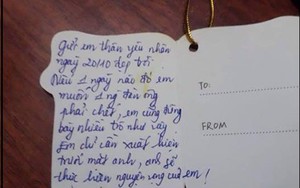 Gửi em thân yêu nhân
ngày 20/10 đẹp trời.
Nếu 1 ngày nào đó em
muốn 1 ng đàn ông
phải chết, em cũng đừng
bày nhiều trò như vậy
Em chỉ cần xuất hiện
trước mặt anh, anh sẽ
thực hiện nguyện vọng của em!
TO:
FROM